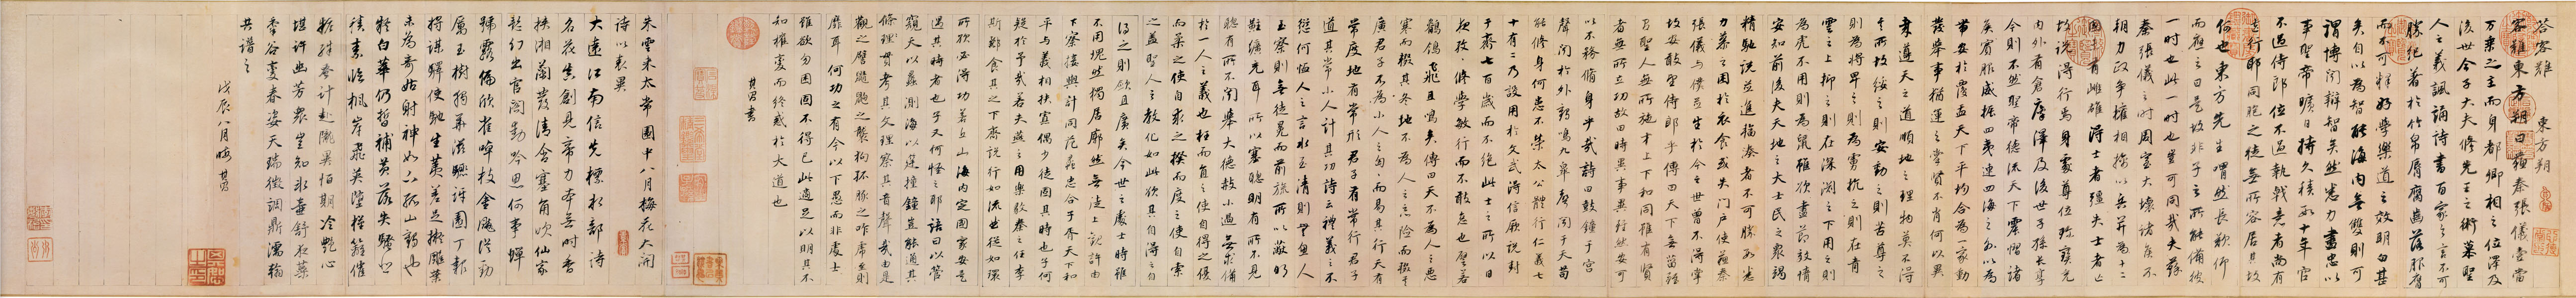 答客難 東方朔
客難東方朔曰蘇秦張儀壹當
万乘之主而身都卿相之位澤及
後世今子大夫修先王之術慕聖
人之義諷誦詩書百家之言不可
勝紀著於竹帛脣腐齒落服膺
而不可釋好學樂道之效明白甚
矣自以為智能海內無雙則可
謂博聞辯智矣然悉力盡忠以
事聖帝曠日持久積數十年官
不過侍郎位不過執戟意者尚有
遺行耶同胞之徒無所容居其故
何也東方先生喟然長歎仰
而應之曰是故非子之所能備彼
一時也此一時也豈可同哉夫蘇
秦張儀之時周室大壞諸侯不
朝力政爭權相擒以兵并為十二
國未有雌雄得士者彊失士者亡
故說得行焉身處尊位珍寶充
內外有倉廩澤及後世子孫長享
今則不然聖帝德流天下震慴諸
侯賓服威振四夷連四海之外以為
帶安於覆盂天下平均合為一家動
發舉事猶運之掌賢不肖何以異
哉遵天之道順地之理物莫不得
其所故綏之則安動之則苦尊之
則為將卑之則為虜抗之則在青
雲之上抑之則在深淵之下用之則
為虎不用則為鼠雖欲盡節效情
安知前後夫天地之大士民之眾竭
精馳說並進輻湊者不可勝數悉
力慕之困於衣食或失門戶使蘇秦
張儀與僕並生於今之世曾不得掌
故安敢望侍郎乎傳曰天下無菑雖
有聖人無所施才上下和同雖有賢
者無所立功故曰時異事異雖然安可
以不務脩身乎哉詩曰鼓鐘于宮
聲聞於外鶴鳴九皋聲聞于天苟
能修身何患不榮太公體行仁義七
十有二乃設用於文武得信厥說封
于齊七百歲而不絕此士之所以日
夜孜孜修學敏行而不敢怠也譬若
鶺鴒飛且鳴矣傳曰天不為人之惡
寒而輟其冬地不為人之惡險而輟其
廣君子不為小人之匈匈而易其行天有
常度地有常形君子有常行君子
道其常小人計其功詩云禮義之不
愆何恤人之言水至清則無魚人
至察則無徒冕而前旒所以蔽明
黈纊充耳所以塞聰明有所不見
聰有所不聞舉大德赦小過無求備
於一人之義也枉而直之使自得之優
而柔之使自求之揆而度之使自索
之蓋聖人之教化如此欲其自得之自
得之則敏且廣矣今世之處士時雖
不用塊然獨居廓然無徒上觀許由
下察接輿計同范蠡忠合子胥天下和
平與義相扶寡偶少徒固其時也子何
疑於予哉若夫燕之用樂毅秦之任李
斯酈食其之下齊說行如流曲從如環
所欲必得功若丘山海內定國家安是
遇其時者也子又何怪之耶語曰以管
窺天以蠡測海以莛撞鐘豈能通其
條理貫考其文理察其音聲哉由是
觀之譬鼱鼩之襲狗孤豚之咋虎至則
靡耳何功之有今以下愚而非處士
雖欲勿困固不得已此適足以明其不
知權變而終惑於大道也
其昌書
朱雲來太常園中八月梅花大開
詩以表異
大遠江南信先標水部詩
名花生創見帝力本無時香
挾湘蘭發清含塞角吹仙家
移幻出官閣動吟思何事蟬
號露偏欣雀啅枝金飈從勁
厲玉樹獨華滋興訝園丁報
將謀驛使馳生荑差足擬雕葉
未為奇姑射神如在孤山鶴也
疑白華仍晢補黃落失騷
積素臨楓岸飛英墮槿籬催
妝殊案計赴隴異怕期冷艷心
堪許幽芳眾豈知冰壺舒夜藥
黍谷變春姿天瑞徵調鼎濡翰
共譜之
戊辰八月晦 其昌